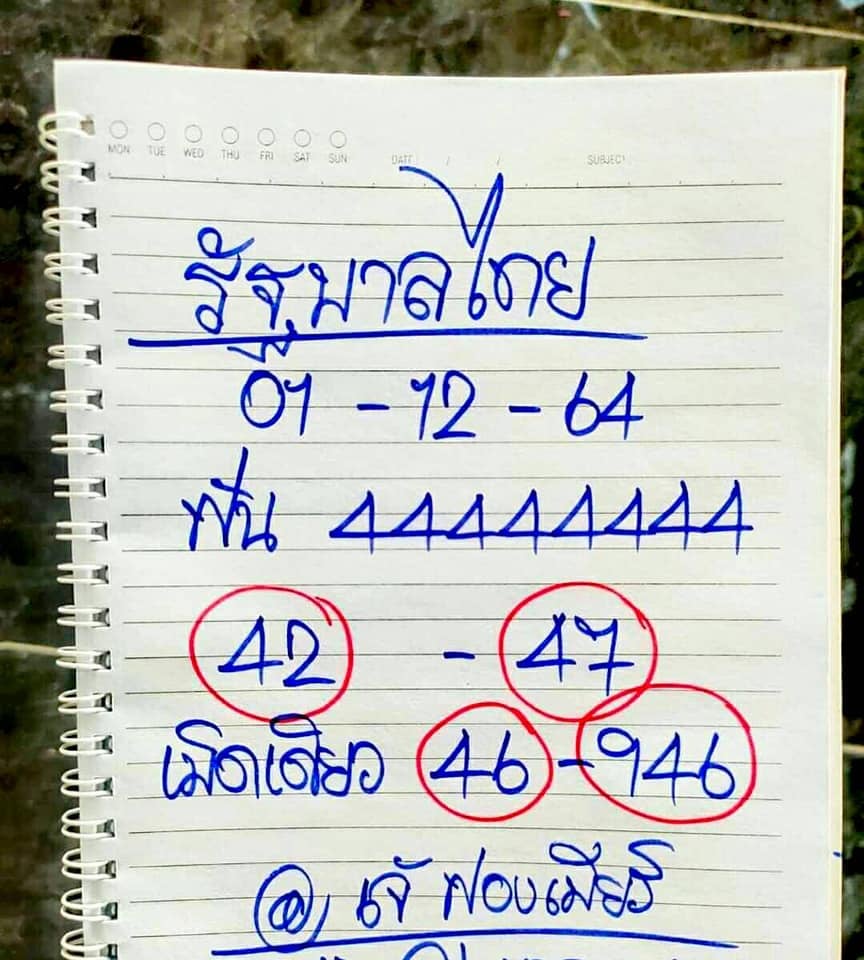 MON TUE WED THU FRI SAT SUN DATE / / SUBJECT
รัฐบาลไทย
01 - 12 - 64
ฟัน 44444444
42 - 47
เม็ดเดียว 46 - 946
@ เจ๊ ฟองเบียร์